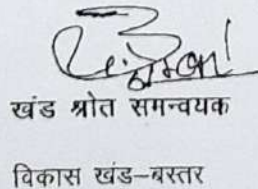 खंड श्रोत समन्वयक
विकास खंड-बस्तर